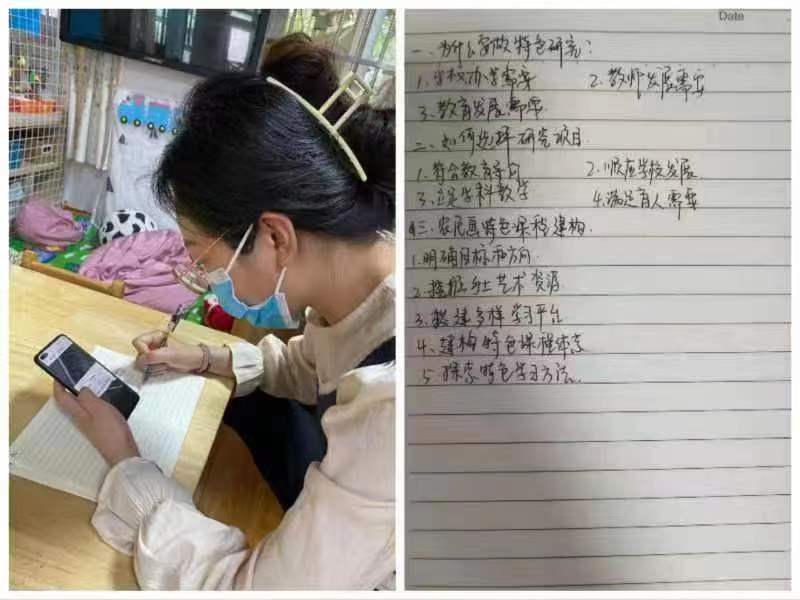 Date
一、为什么要做特色研究：
1.学校办学需要 2.教师发展需要
3.教育发展需要
二、如何选择研究项目
1.符合教育方向 2.顺应学校发展
3.立足学科教学 4.满足育人需要
三、农民画特色课程建构
1.明确目标和方向
2.挖掘乡土艺术资源
3.搭建多样学习平台
4、建构特色课程体系
5.探索特色学习方法